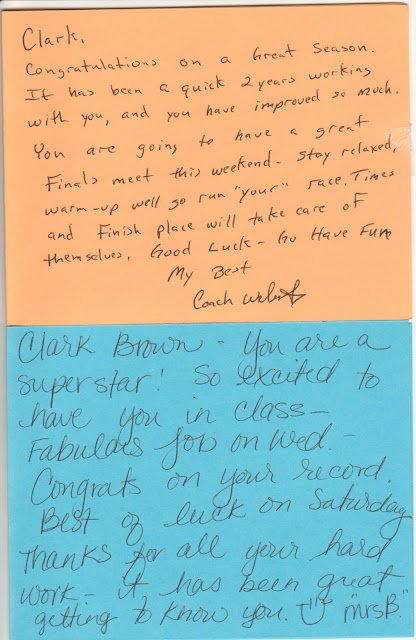 Clark,
Congratulations on a Great Season.
It has been a quick 2 years working
with you, and you have improved so much.
You are going to have a great
Finals meet this weekend - stay relaxed,
warm-up well go run "your" race. Times
and Finish place will take care of
themselves. Good Luck - Go Have Fun
My Best
Coach
Clark Brown - You are a
superstar! So excited to
have you in class -
Fabulous job on Wed. -
Congrats on your record.
Best of luck on Saturday
Thanks for all your hard
work - it has been great
getting to know you. "Mrs B."